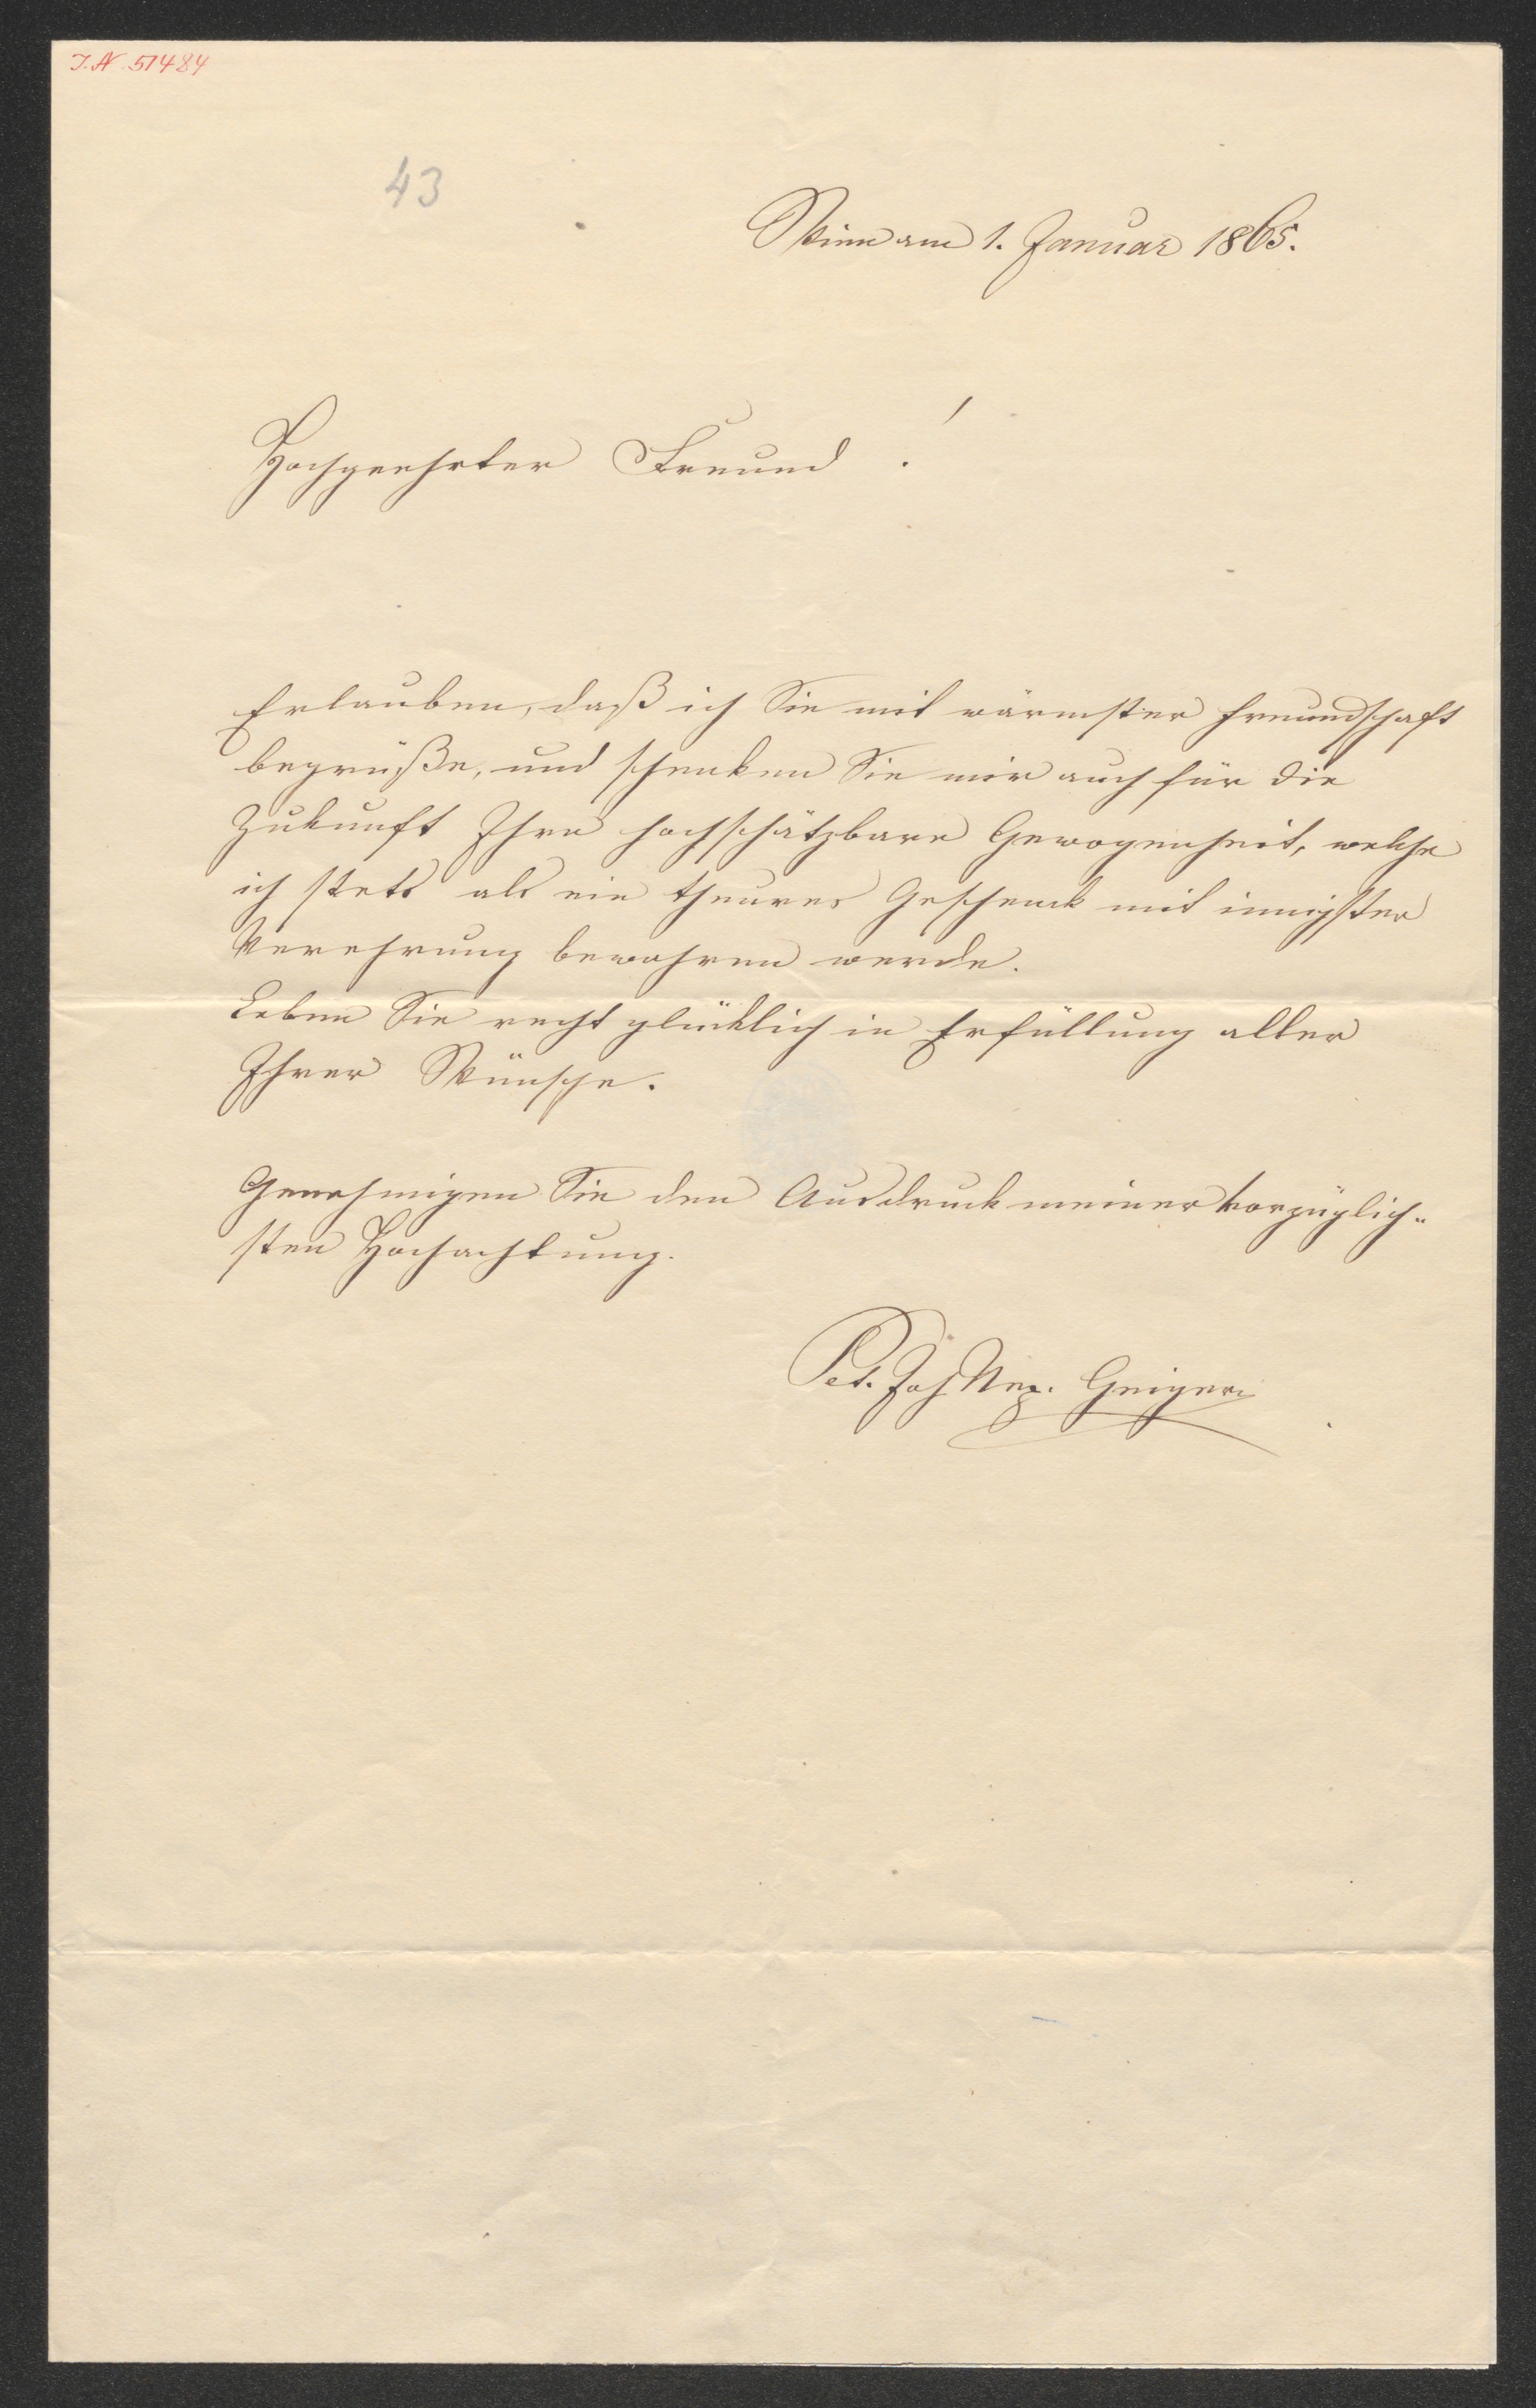 I.N. 51484
43
Wien am 1. Januar 1865.
Hochgeehrter Freund !
Erlauben, daß ich Sie mit wärmster Freundschaft
begrüße, und schenken Sie mir auch für die
Zukunft Ihre hochschätzbare Gewogenheit, welche
ich stets als ein theures Geschenk mit innigster
Verehrung bewahren werde.
Leben Sie recht glücklich in Erfüllung aller
Ihrer Wünsche.
Genehmigen Sie den Ausdruck meiner vorzüglich„
sten Hochachtung.
Pet. Joh Nep. Geiger